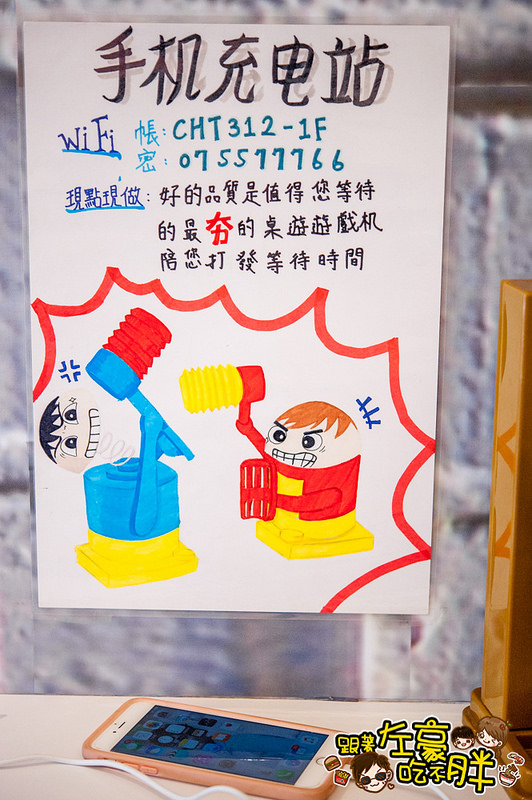 手机充电站
WiFi 帳:CHT312-1F
密:075577766
現點現做:好的品質是值得您等待
的最夯的桌遊遊戲机
陪您打發等待時間
跟著左豪吃不胖